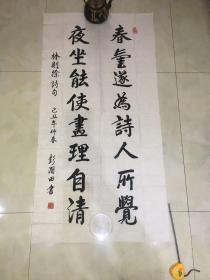 春氣遂為詩人所覺
夜坐能使畫理自清
林則徐詩句 己丑年仲春 彭國田書